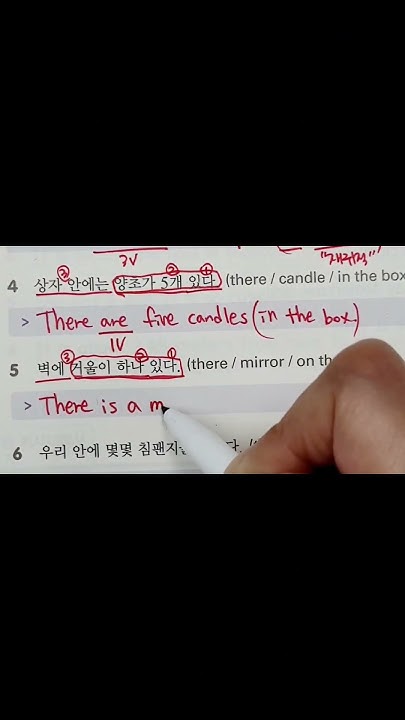 3V
"재귀적"
③ ② ①
4 상자 안에는 양초가 5개 있다. (there / candle / in the box
> There are five candles (in the box.)
1V
③ ② ①
5 벽에 거울이 하나 있다. (there / mirror / on th
> There is a m
6 우리 안에 몇몇 침팬지